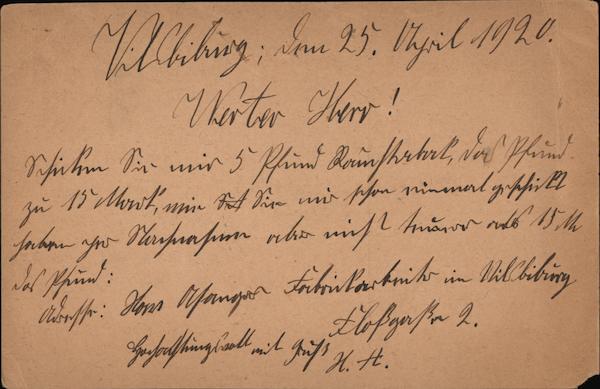 Vilsbiburg; den 25. April 1920.
Werter Herr!
Schicken Sie mir 5 Pfund Rauchtabak, das Pfund
zu 15 Mark, wie Sie mir schon einmal geschickt
haben per Nachnahme aber nicht teurer als 15 M
das Pfund:
Adresse: Hans Asanger Fabrikarbeiter in Vilsbiburg
Floßgasse 2.
Hochachtungsvoll mit Gruß
H. A.